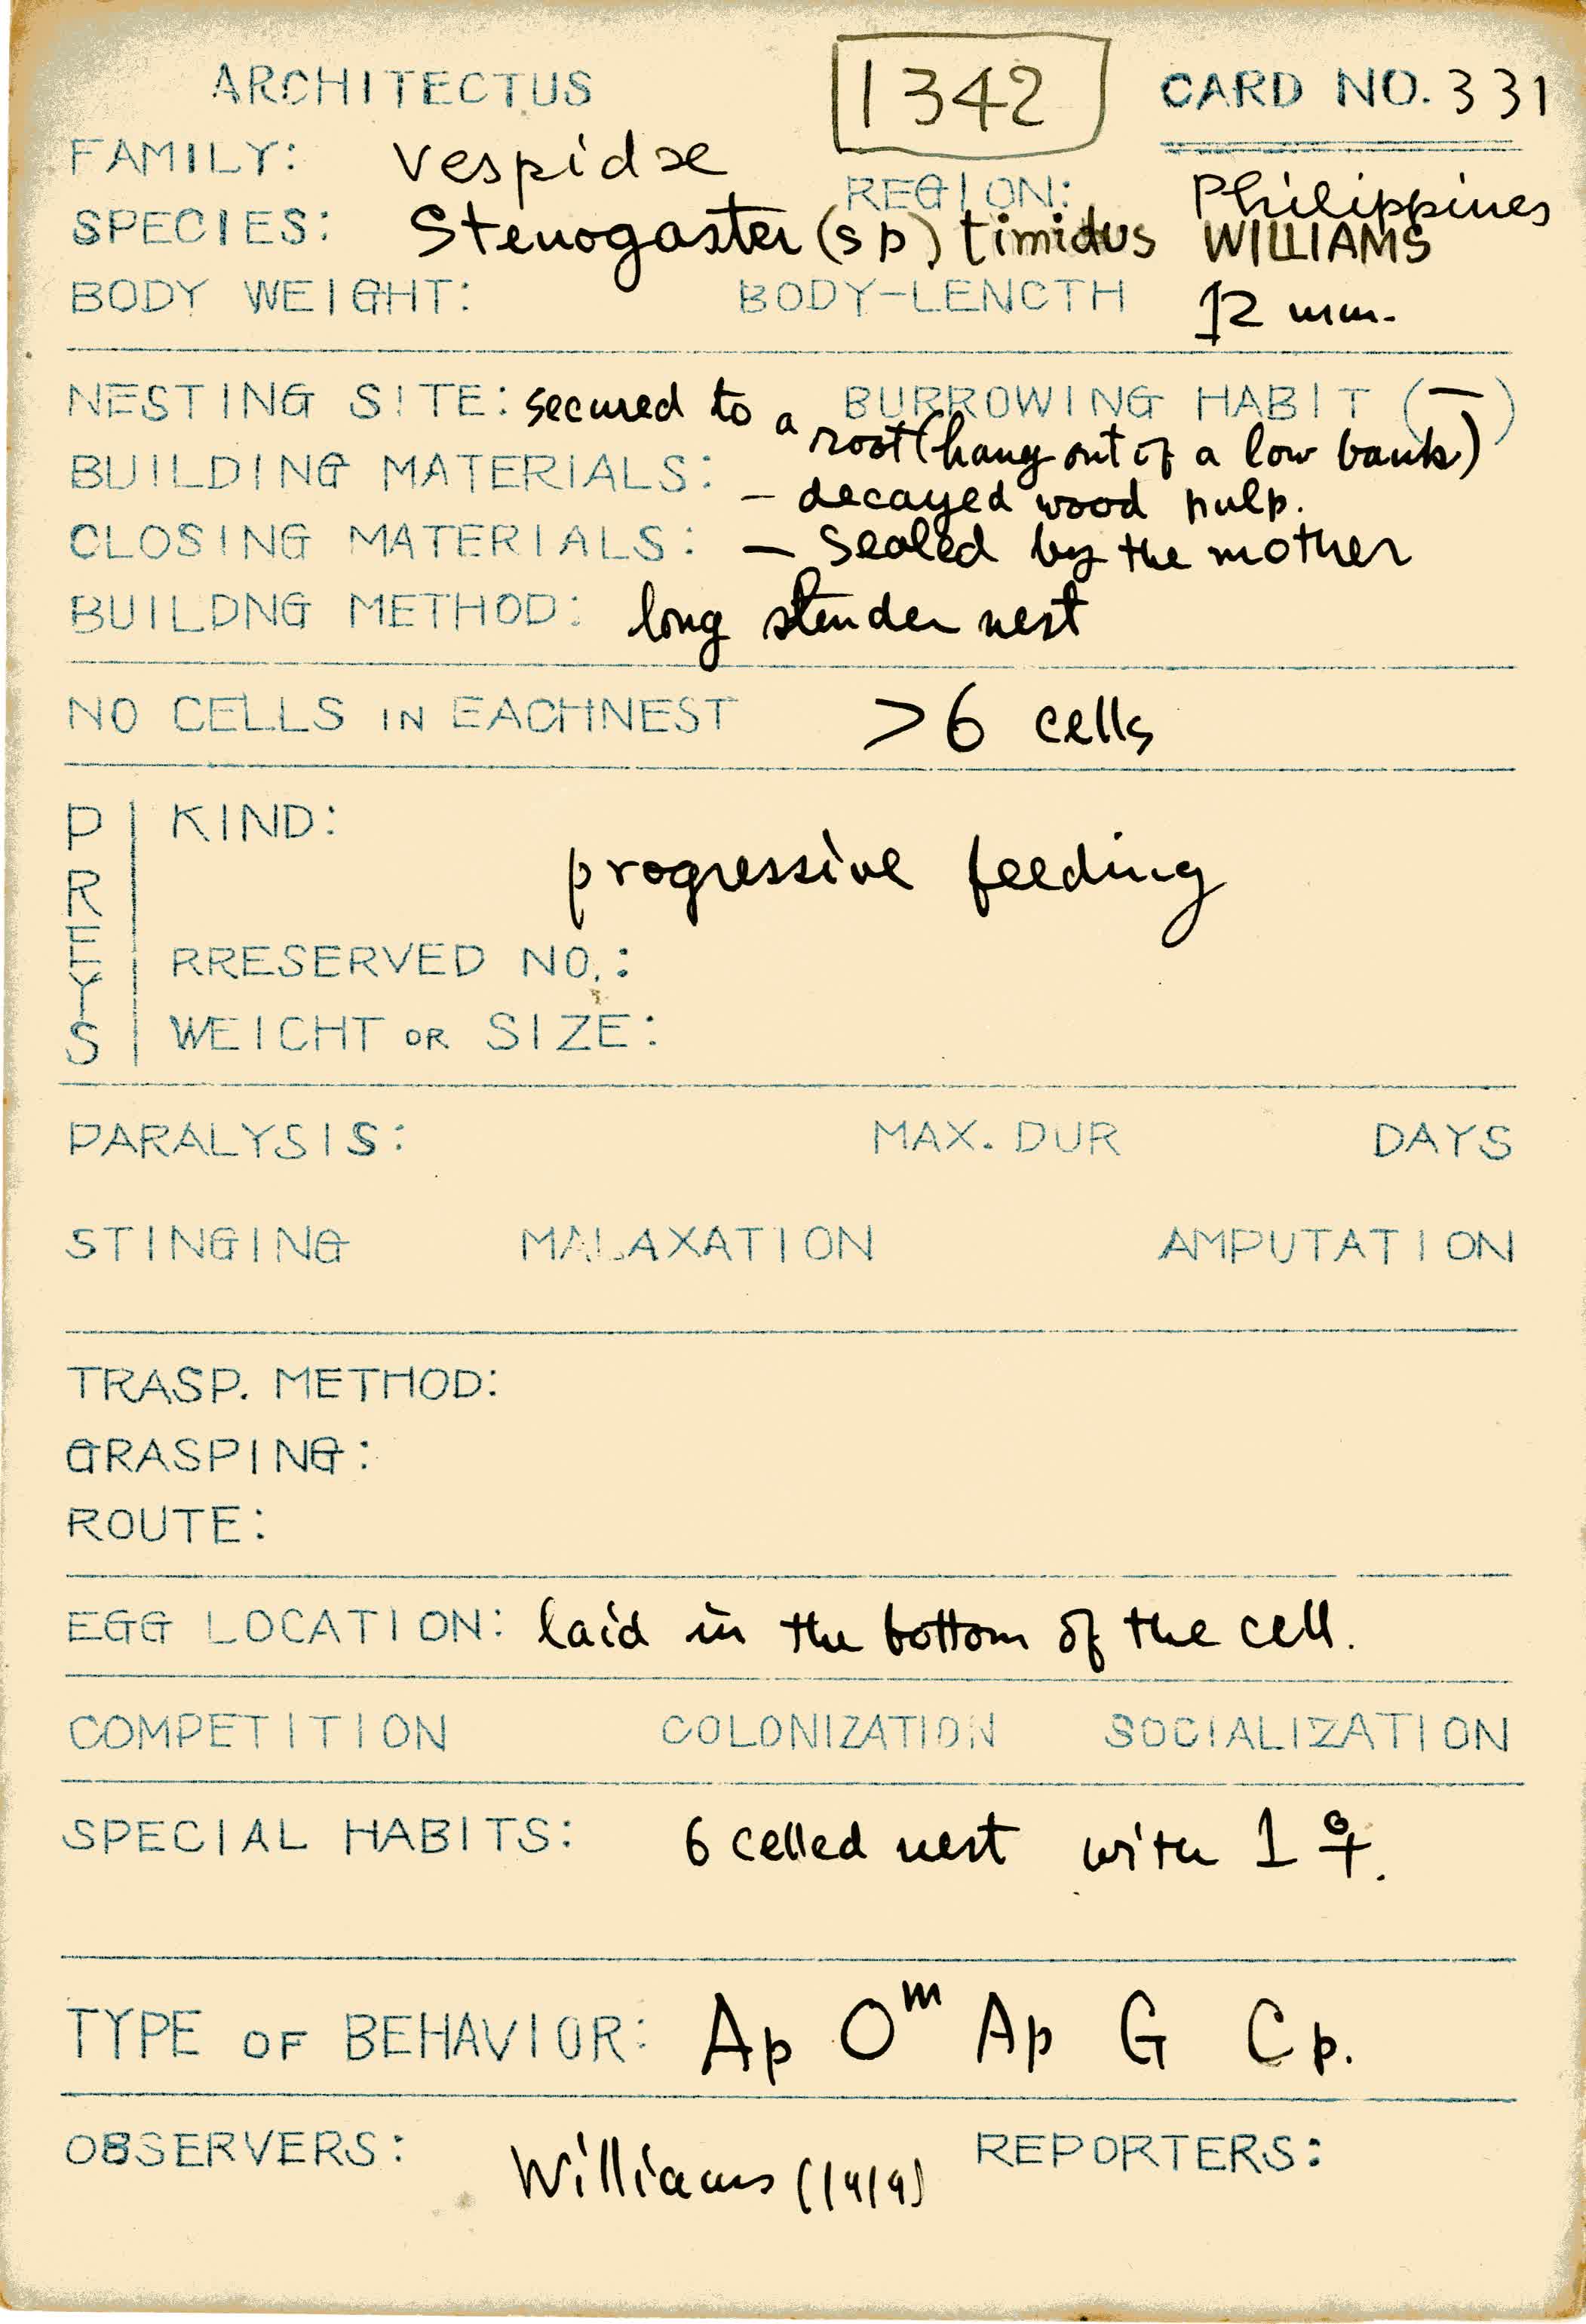 ARCHITECTUS 1342 CARD NO. 331
FAMILY: Vespidae REGION: Philippines
SPECIES: Stenogaster (sp) timidus WILLIAMS
BODY WEIGHT: BODY-LENCTH 12 mm.
NESTING SITE: secured to a root (hang out of a low bank) BURROWING HABIT (—)
BUILDING MATERIALS: — decayed wood pulp.
CLOSING MATERIALS: — Sealed by the mother
BUILDNG METHOD: long slender nest
NO CELLS IN EACHNEST >6 cells
PREYS
KIND: progressive feeding
RRESERVED NO.:
WEICHT OR SIZE:
PARALYSIS: MAX. DUR DAYS
STINGING MALAXATION AMPUTATION
TRASP. METHOD:
GRASPING:
ROUTE:
EGG LOCATION: laid in the bottom of the cell.
COMPETITION COLONIZATION SOCIALIZATION
SPECIAL HABITS: 6 celled nest with 1 ♀.
TYPE OF BEHAVIOR: Ap O^m Ap G Cp.
OBSERVERS: Williams (1919) REPORTERS: